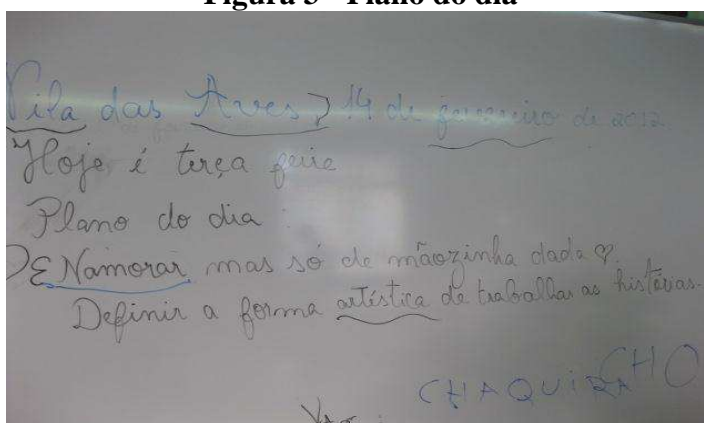 Figura 3 - Plano do dia
Vila das Aves, 14 de fevereiro de 2012
Hoje é terça feira
Plano do dia:
Namorar mas só de mãozinha dada ♡.
Definir a forma artística de trabalhar as histórias.
CHAQUIRA CHO